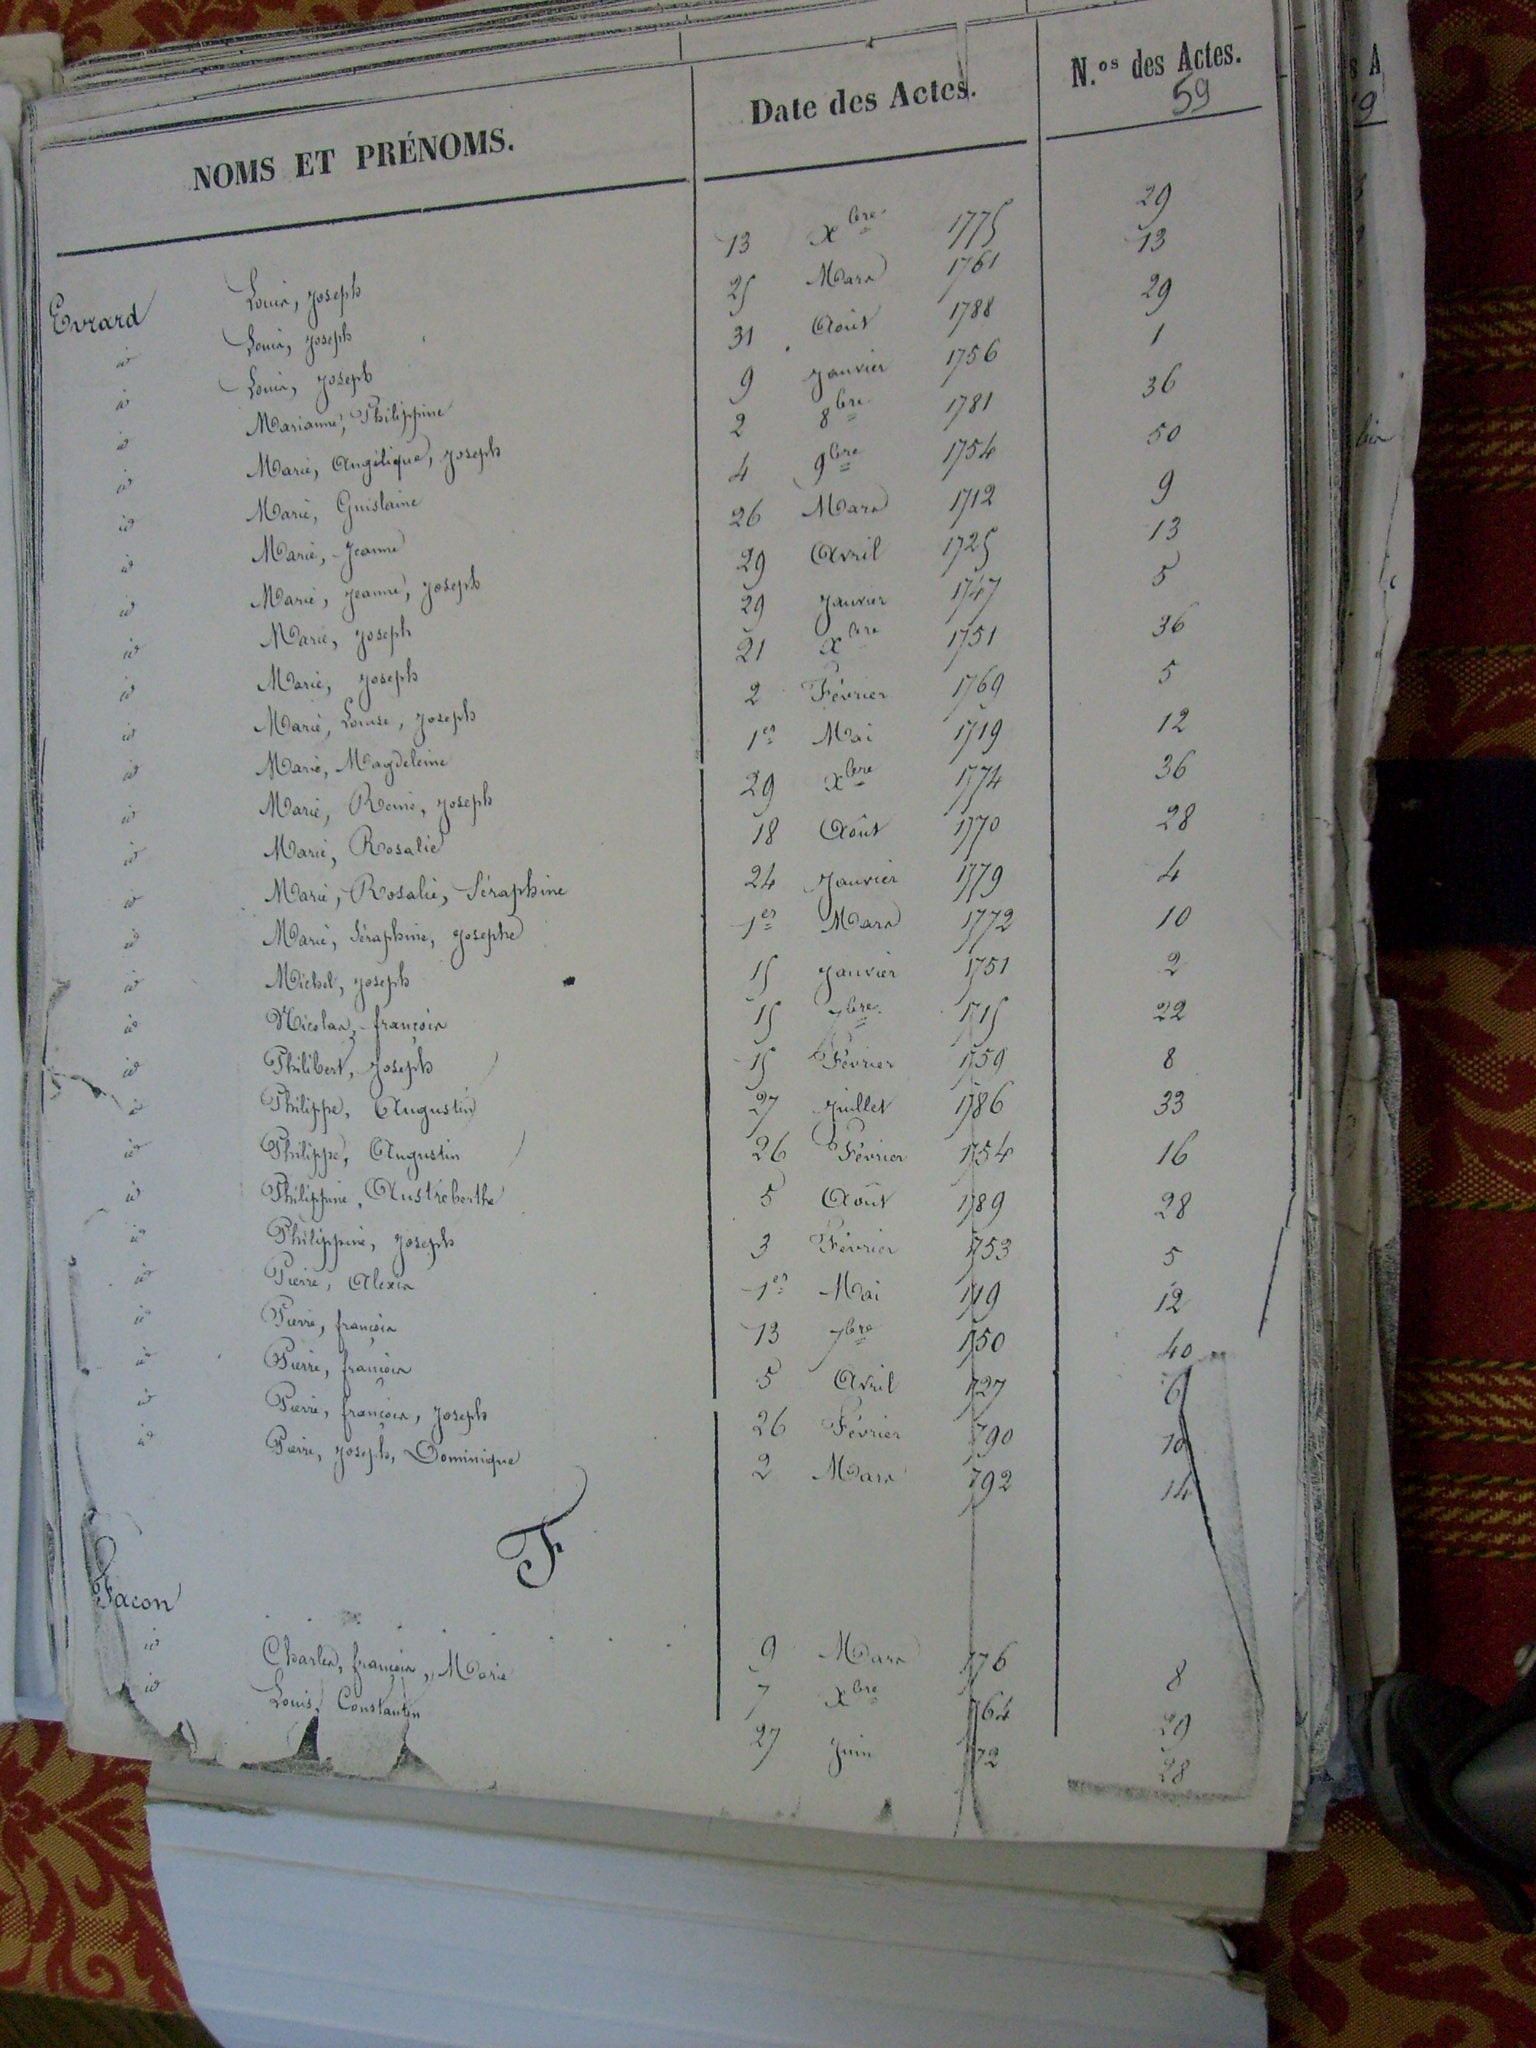 NOMS ET PRÉNOMS. Date des Actes. N.os des Actes.
59
Evrard Louis, Joseph 13 Xbre 1775 29
id Louis, Joseph 25 Mars 1761 13
id Louis, Joseph 31 Août 1788 29
id Marianne, Philippine 9 Janvier 1756 1
id Marie, Angélique, Joseph 2 8bre 1781 36
id Marie, Guislaine 4 9bre 1754 50
id Marie, Jeanne 26 Mars 1712 9
id Marie, Jeanne, Joseph 29 Avril 1725 13
id Marie, Joseph 29 Janvier 1747 5
id Marie, Joseph 21 Xbre 1751 36
id Marie, Louise, Joseph 2 Février 1769 5
id Marie, Magdeleine 1er Mai 1719 12
id Marie, Reine, Joseph 29 Xbre 1774 36
id Marie, Rosalie 18 Août 1770 28
id Marie, Rosalie, Séraphine 24 Janvier 1779 4
id Marie, Séraphine, Josephe 1er Mars 1772 10
id Michel, Joseph 15 Janvier 1751 2
id Nicolas, françois 15 7bre 1715 22
id Philibert, Joseph 15 Février 1759 8
id Philippe, Augustin 27 Juillet 1786 33
id Philippe, Augustin 26 Février 1754 16
id Philippine, Austreberthe 5 Août 1789 28
id Philippine, Joseph 3 Février 1753 5
id Pierre, Alexis 1er Mai 1719 12
id Pierre, françois 13 7bre 1750 40
id Pierre, françois 5 Avril 1727 6
id Pierre, françois, Joseph 26 Février 1790 10
id Pierre, Joseph, Dominique 2 Mars 1792 14
F
Facon 9 Mars 1776 8
id Charles, françois, Marie 7 Xbre 1764 29
id Louis, Constantin 27 Juin 1772 28